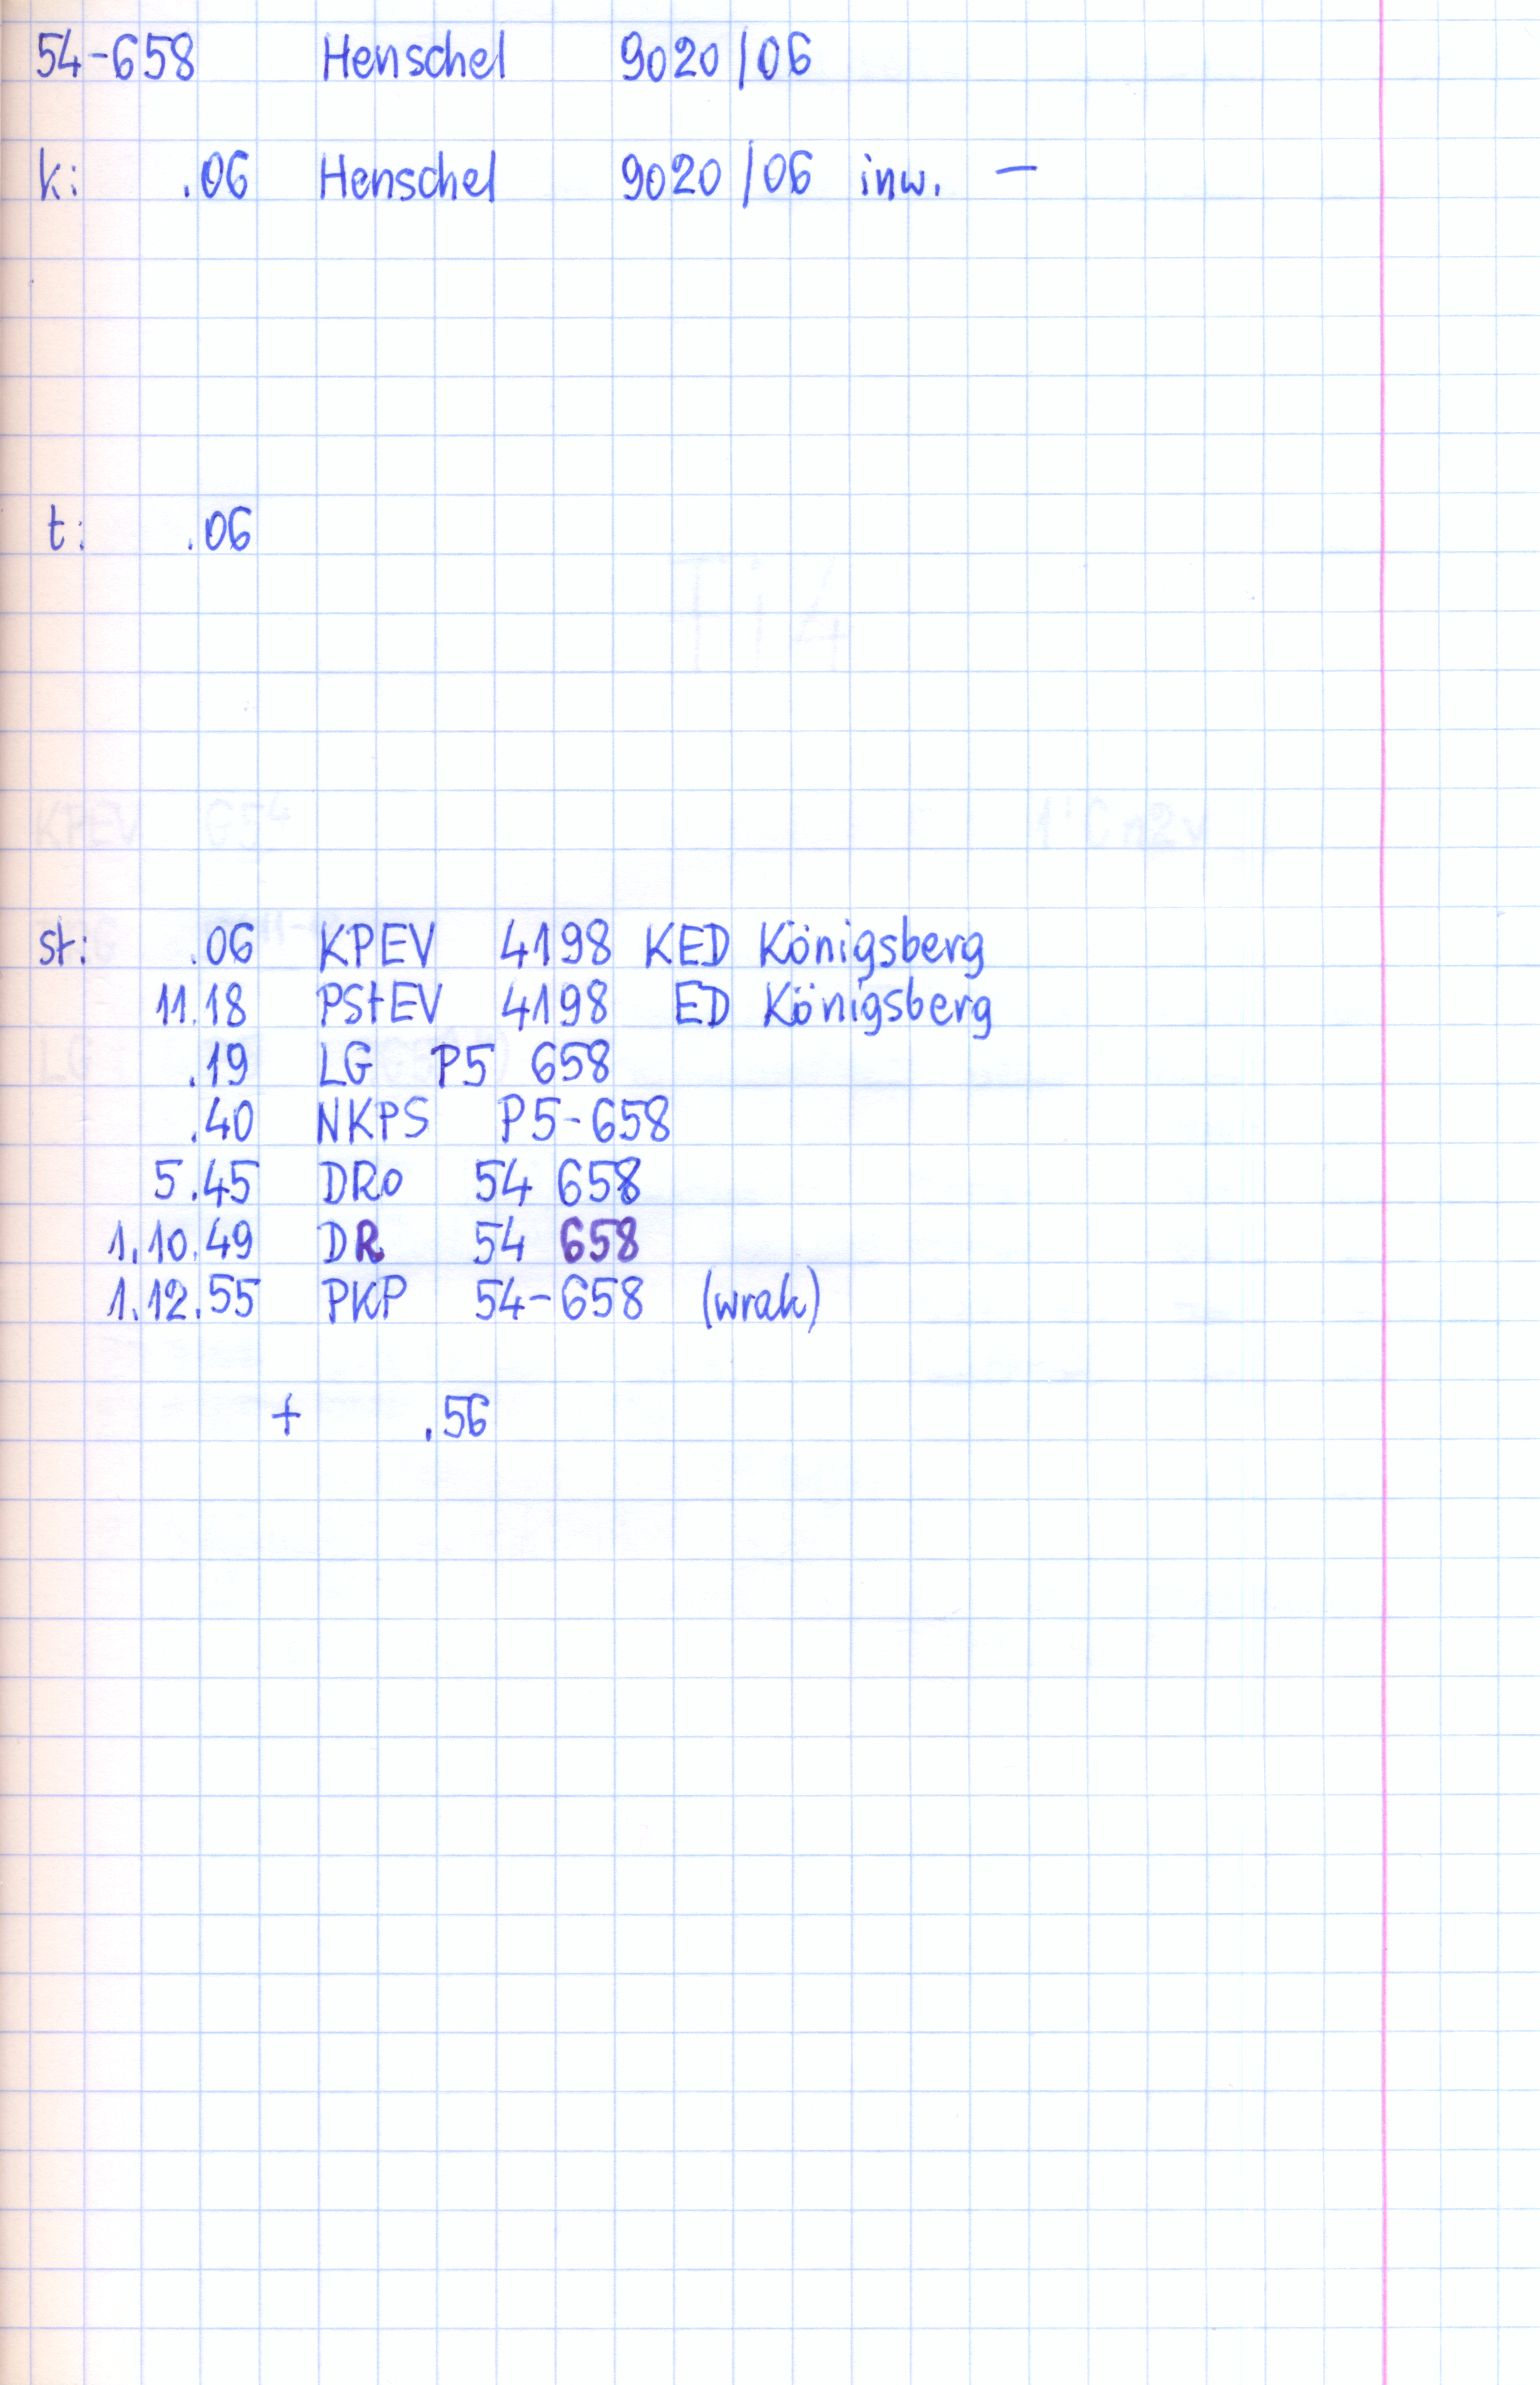 54-658 Henschel 9020/06
k: .06 Henschel 9020/06 inw. –
t: .06
st: .06 KPEV 4198 KED Königsberg
11.18 PStEV 4198 ED Königsberg
.19 LG P5 658
.40 NKPS P5-658
5.45 DRo 54 658
1.10.49 DR 54 658
1.12.55 PKP 54-658 (wrak)
+ .56